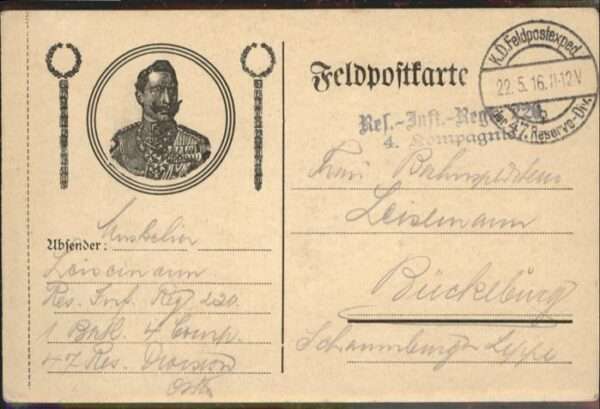 Feldpostkarte
K.D. Feldpostexped.
22. 5. 16. 11-12V
der 47. Reserve-Div.
Res.-Inft.-Reg. 220
4. Kompagnie
Frau
Leisemann
Bückeburg
Schaumburg Lippe
Absender: Musketier
Leisemann
Res. Inf. Reg 220.
1 Batl. 4 Comp.
47 Res. Division